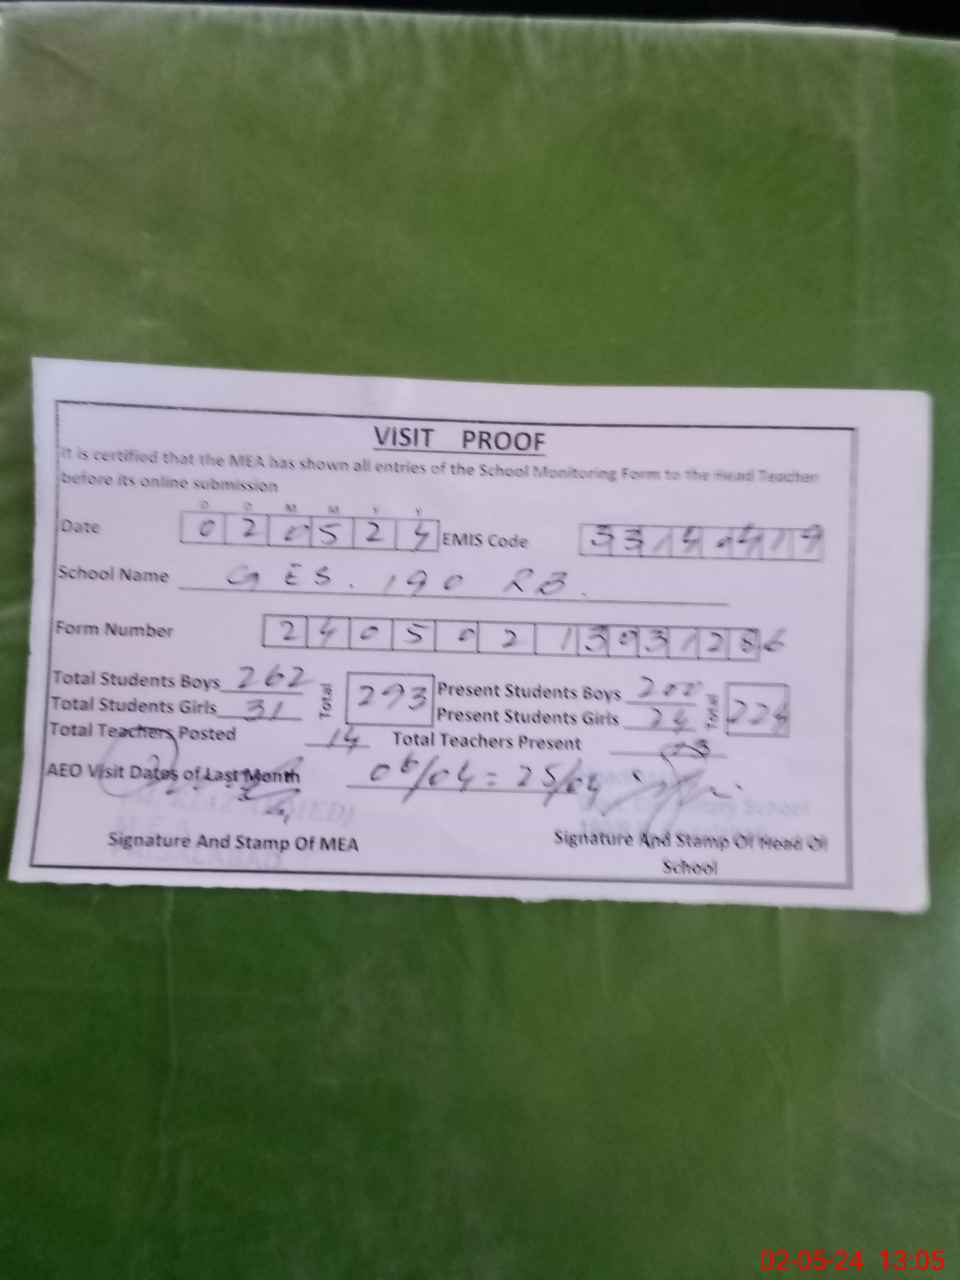 VISIT PROOF
It is certified that the MEA has shown all entries of the School Monitoring Form to the Head Teacher
before its online submission
D D M M Y Y
Date 020524 EMIS Code
School Name GES. 190 RB.
Form Number
Total Students Boys 262 Total 293 Present Students Boys 200 Total 224
Total Students Girls 31 Present Students Girls 24
Total Teachers Posted 14 Total Teachers Present
AEO Visit Dates of Last Month 06/04 = 25/04
Signature And Stamp Of MEA Signature And Stamp Of Head Of
School
02-05-24 13:05